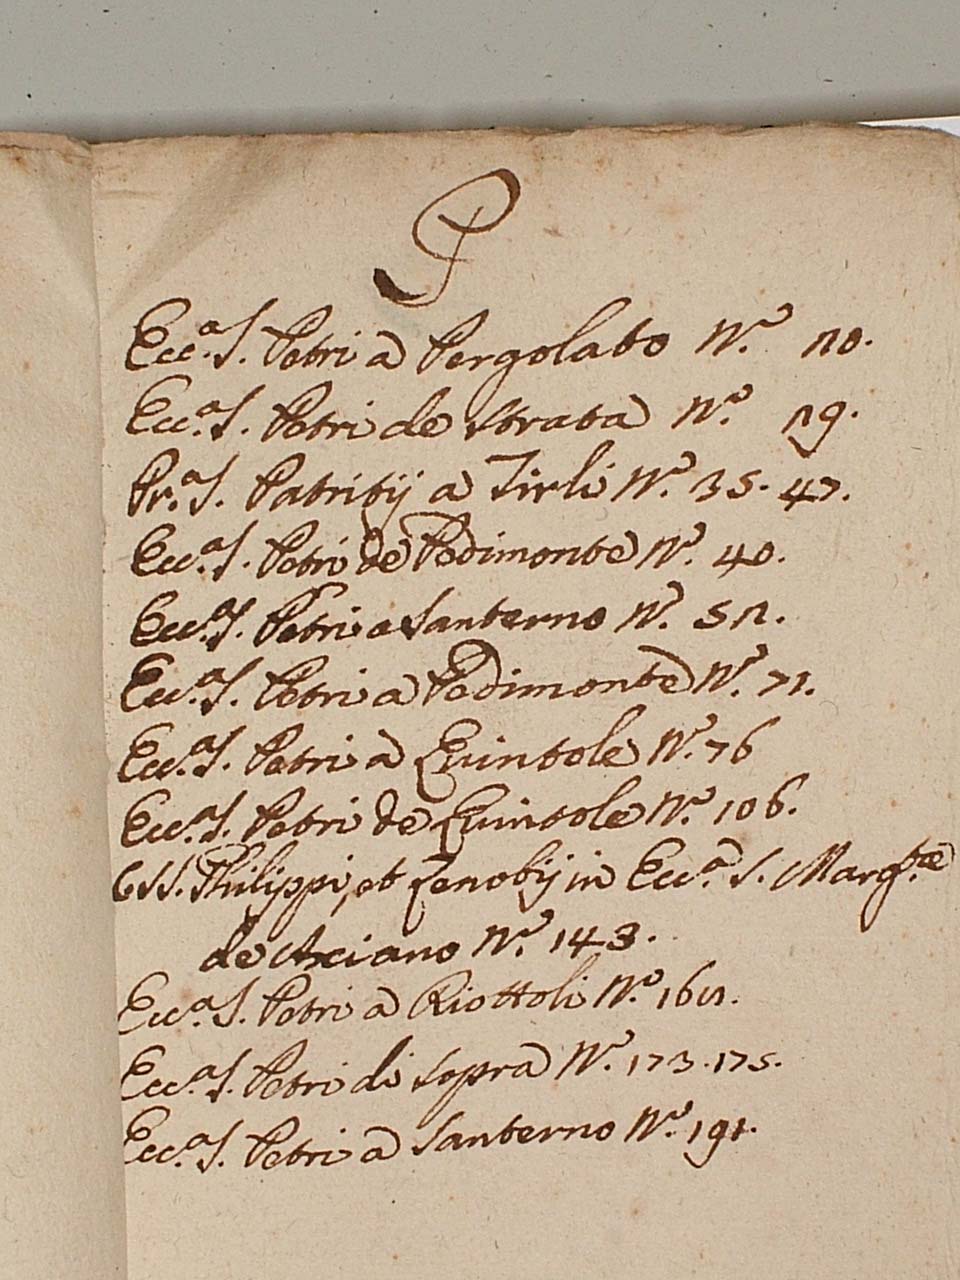 P
Ecc.ª S. Petri a Pergolato N.º 20.
Ecc.ª S. Petri de Strata N.º 29.
Pr.ª S. Patritij a Tirli N.º 35. 47.
Ecc.ª S. Petri de Pedimonte N.º 40.
Ecc.ª S. Petri a Santerno N.º 52.
Ecc.ª S. Petri a Pedimonte N.º 71.
Ecc.ª S. Petri a Quintole N.º 76
Ecc.ª S. Petri de Quintole N.º 106.
SS. Philippi, et Zenobij in Ecc.ª S. Marg.tæ
de Asciano N.º 143.
Ecc.ª S. Petri a Riottoli N.º 162.
Ecc.ª S. Petri di sopra N.º 173. 175.
Ecc.ª S. Petri a Santerno N.º 191.